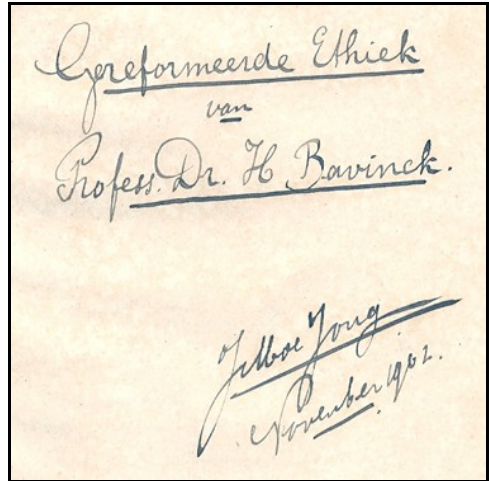 Gereformeerde Ethiek
van
Profess. Dr. H Bavinck.
JMde Jong
November 1902.